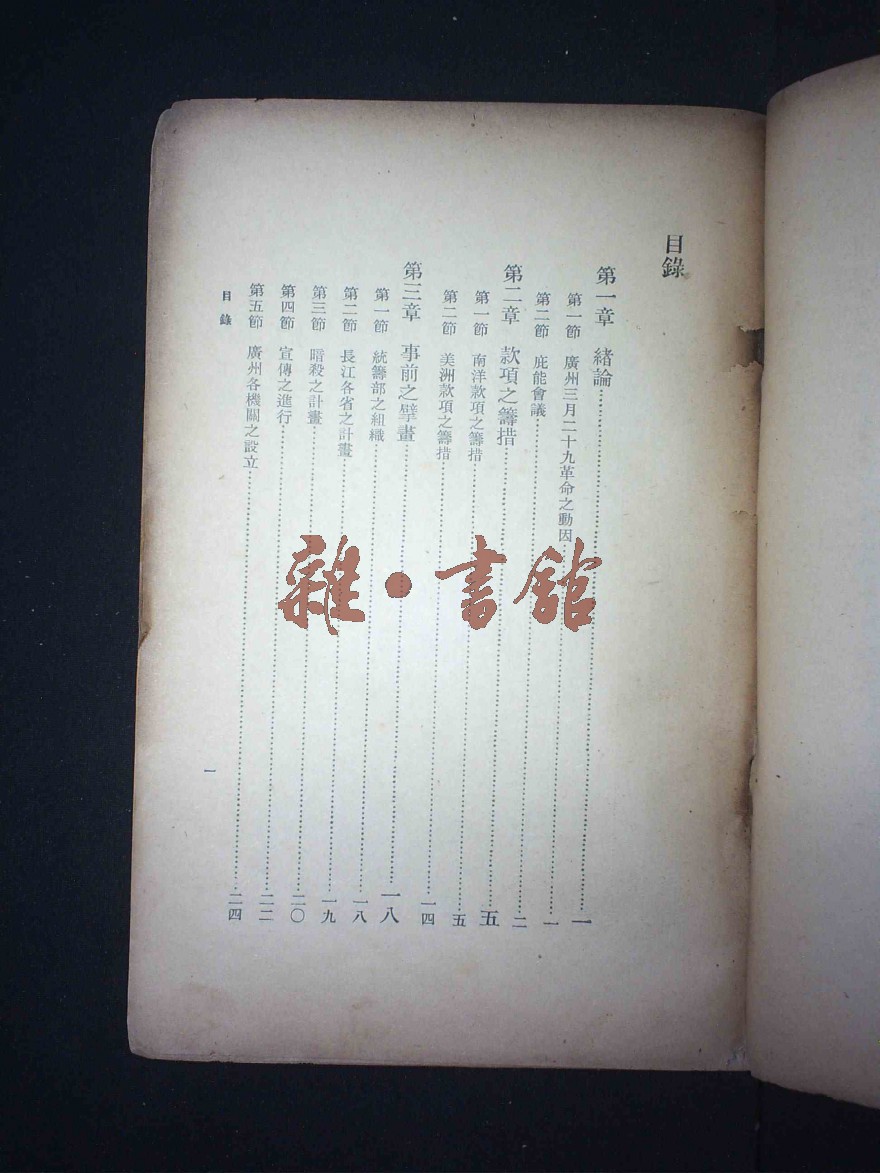 目錄
第一章　緒論……一
第一節　廣州三月二十九革命之動因……一
第二節　庇能會議……二
第二章　款項之籌措……五
第一節　南洋款項之籌措……五
第二節　美洲款項之籌措……一四
第三章　事前之擘畫……一八
第一節　統籌部之組織……一八
第二節　長江各省之計畫……一九
第三節　暗殺之計畫……二〇
第四節　宣傳之進行……二二
第五節　廣州各機關之設立……二四
目錄
一
雜·書館